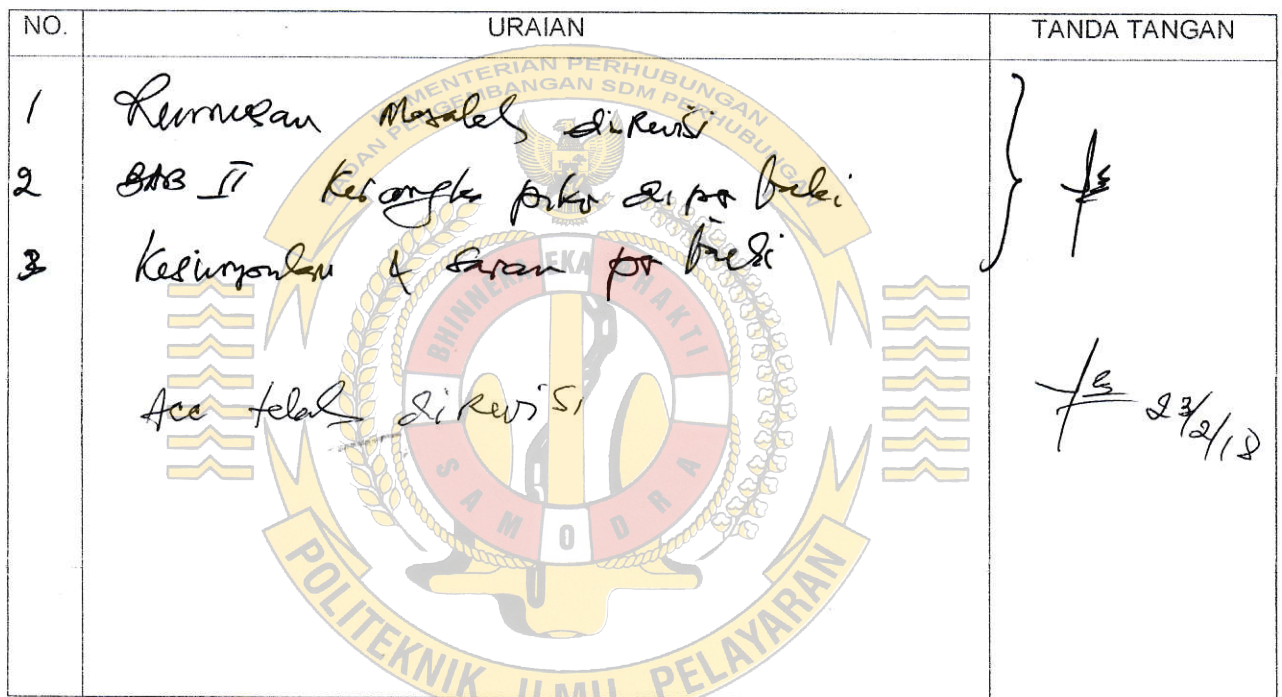 NO. URAIAN TANDA TANGAN
1 Rumusan Masalah direvisi
2 BAB II Kerangka pikir diperbaiki
3 Kesimpulan & saran perbaiki
Acc telah direvisi
23/2/18
KEMENTERIAN PERHUBUNGAN
BADAN PENGEMBANGAN SDM PERHUBUNGAN
BHINNEKA EKA BHAKTI
SAMODRA
POLITEKNIK ILMU PELAYARAN